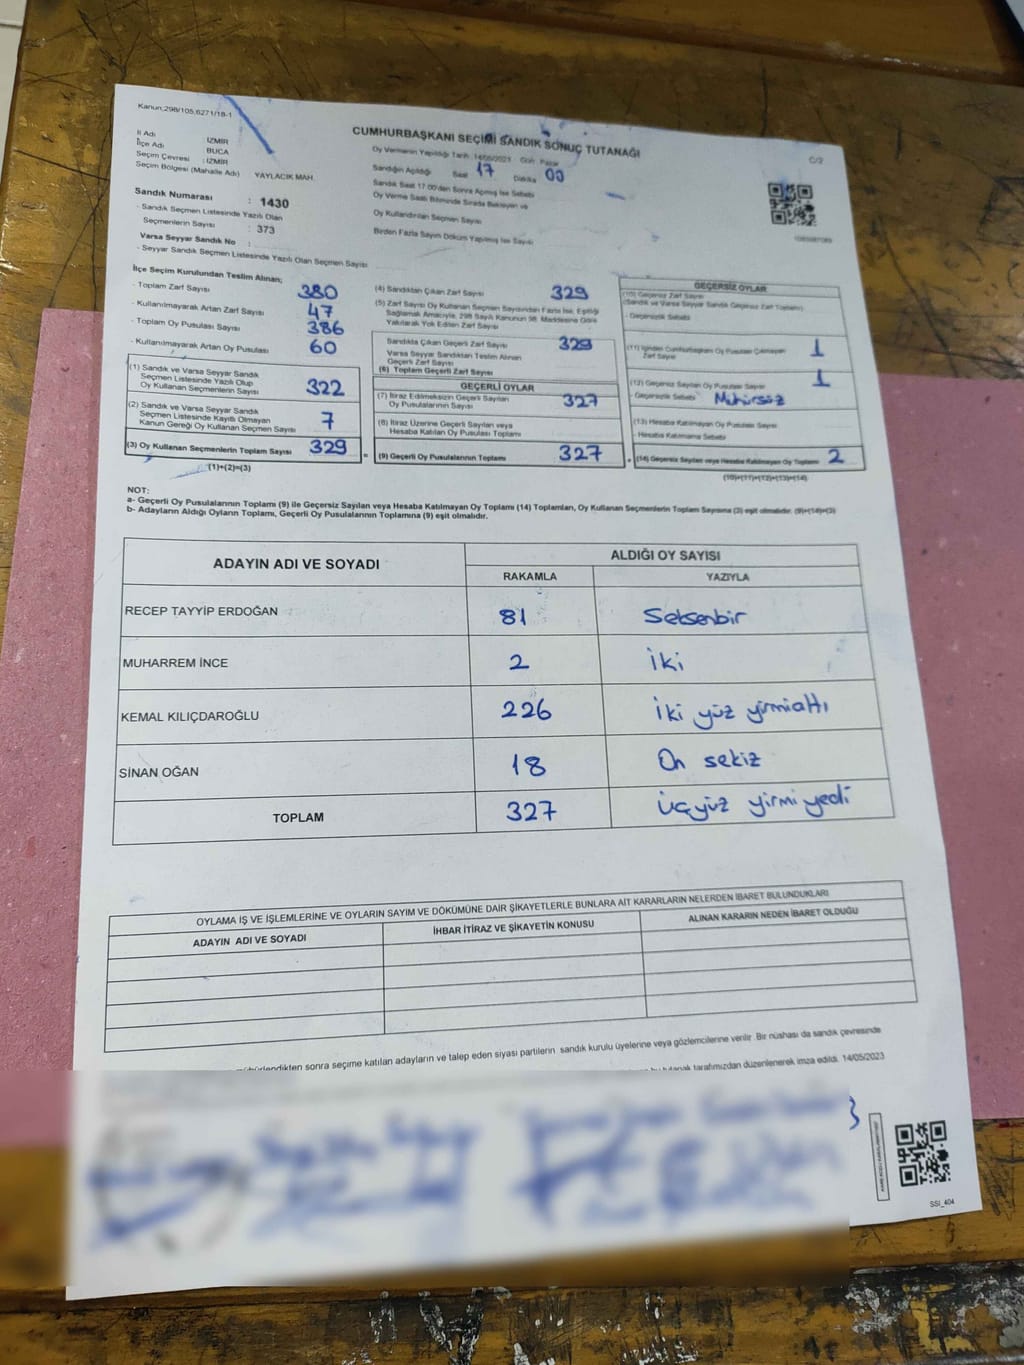 Kanun:298/105,6271/18-1
CUMHURBAŞKANI SEÇİMİ SANDIK SONUÇ TUTANAĞI
C/2
İl Adı İZMİR
İlçe Adı BUCA
Seçim Çevresi : İZMİR
Seçim Bölgesi (Mahalle Adı) YAYLACIK MAH.
Oy Vermenin Yapıldığı Tarih :14/05/2023 Gün Pazar
Sandığın Açıldığı Saat 17 Dakika 00
Sandık Saat 17:00'den Sonra Açılmış İse Sebebi
Oy Verme Saati Bitiminde Sırada Bekleyen ve
Oy Kullandırılan Seçmen Sayısı
Birden Fazla Sayım Döküm Yapılmış İse Sayısı
Sandık Numarası : 1430
- Sandık Seçmen Listesinde Yazılı Olan
Seçmenlerin Sayısı : 373
Varsa Seyyar Sandık No :
- Seyyar Sandık Seçmen Listesinde Yazılı Olan Seçmen Sayısı
İlçe Seçim Kurulundan Teslim Alınan;
- Toplam Zarf Sayısı 380
- Kullanılmayarak Artan Zarf Sayısı 47
- Toplam Oy Pusulası Sayısı 386
- Kullanılmayarak Artan Oy Pusulası 60
(1) Sandık ve Varsa Seyyar Sandık
Seçmen Listesinde Yazılı Olup
Oy Kullanan Seçmenlerin Sayısı 322
(2) Sandık ve Varsa Seyyar Sandık
Seçmen Listesinde Kayıtlı Olmayan
Kanun Gereği Oy Kullanan Seçmen Sayısı 7
(3) Oy Kullanan Seçmenlerin Toplam Sayısı 329
(1)+(2)=(3)
(4) Sandıktan Çıkan Zarf Sayısı 329
(5) Zarf Sayısı Oy Kullanan Seçmen Sayısından Fazla İse, Eşitliği
Sağlamak Amacıyla, 298 Sayılı Kanunun 98. Maddesine Göre
Yakılarak Yok Edilen Zarf Sayısı
Sandıkta Çıkan Geçerli Zarf Sayısı 329
Varsa Seyyar Sandıktan Teslim Alınan
Geçerli Zarf Sayısı
(6) Toplam Geçerli Zarf Sayısı
GEÇERLİ OYLAR
(7) İtiraz Edilmeksizin Geçerli Sayılan
Oy Pusulalarının Sayısı 327
(8) İtiraz Üzerine Geçerli Sayılan veya
Hesaba Katılan Oy Pusulası Toplamı
= (9) Geçerli Oy Pusulalarının Toplamı 327
GEÇERSİZ OYLAR
(10) Geçersiz Zarf Sayısı
(Sandık ve Varsa Seyyar Sandık Geçersiz Zarf Toplamı)
- Geçersizlik Sebebi
(11) İçinden Cumhurbaşkanı Oy Pusulası Çıkmayan
Zarf Sayısı 1
(12) Geçersiz Sayılan Oy Pusulası Sayısı 1
- Geçersizlik Sebebi Mühürsüz
(13) Hesaba Katılmayan Oy Pusulası Sayısı
- Hesaba Katılmama Sebebi
+ (14) Geçersiz Sayılan veya Hesaba Katılmayan Oy Toplamı 2
(10)+(11)+(12)+(13)=(14)
NOT:
a- Geçerli Oy Pusulalarının Toplamı (9) ile Geçersiz Sayılan veya Hesaba Katılmayan Oy Toplamı (14) Toplamları, Oy Kullanan Seçmenlerin Toplam Sayısına (3) eşit olmalıdır. (9)+(14)=(3)
b- Adayların Aldığı Oyların Toplamı, Geçerli Oy Pusulalarının Toplamına (9) eşit olmalıdır.
ADAYIN ADI VE SOYADI ALDIĞI OY SAYISI
RAKAMLA YAZIYLA
RECEP TAYYİP ERDOĞAN 81 Seksenbir
MUHARREM İNCE 2 İki
KEMAL KILIÇDAROĞLU 226 İki yüz yirmialtı
SİNAN OĞAN 18 On sekiz
TOPLAM 327 Üçyüz yirmi yedi
OYLAMA İŞ VE İŞLEMLERİNE VE OYLARIN SAYIM VE DÖKÜMÜNE DAİR ŞİKAYETLERLE BUNLARA AİT KARARLARIN NELERDEN İBARET BULUNDUKLARI
ADAYIN ADI VE SOYADI İHBAR İTİRAZ VE ŞİKAYETİN KONUSU ALINAN KARARIN NEDEN İBARET OLDUĞU
sonra seçime katılan adayların ve talep eden siyasi partilerin sandık kurulu üyelerine veya gözlemcilerine verilir. Bir nüshası da sandık çevresinde
tutanak tarafımızdan düzenlenerek imza edildi. 14/05/2023
SSI_404